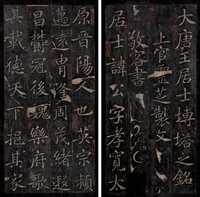 大唐王居士塼塔之銘
上官靈芝製文
敬客書
居士諱公字孝寬太
原晉陽人也英宗穎
邁遠胄隆周茂緒遐
昌鬱冠後魏樂府歌
其載德天下挹其家